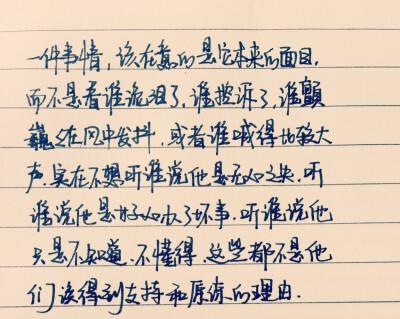 一件事情，该在意的是它本来的面目，
而不是看谁流泪了，谁控诉了，谁颤
巍巍在风中发抖，或者谁喊得比较大
声.实在不想听谁说他是无心之失，听
谁说他是好心办了坏事.听谁说他
只是不知道.不懂得.这些都不是他
们该得到支持和原谅的理由.